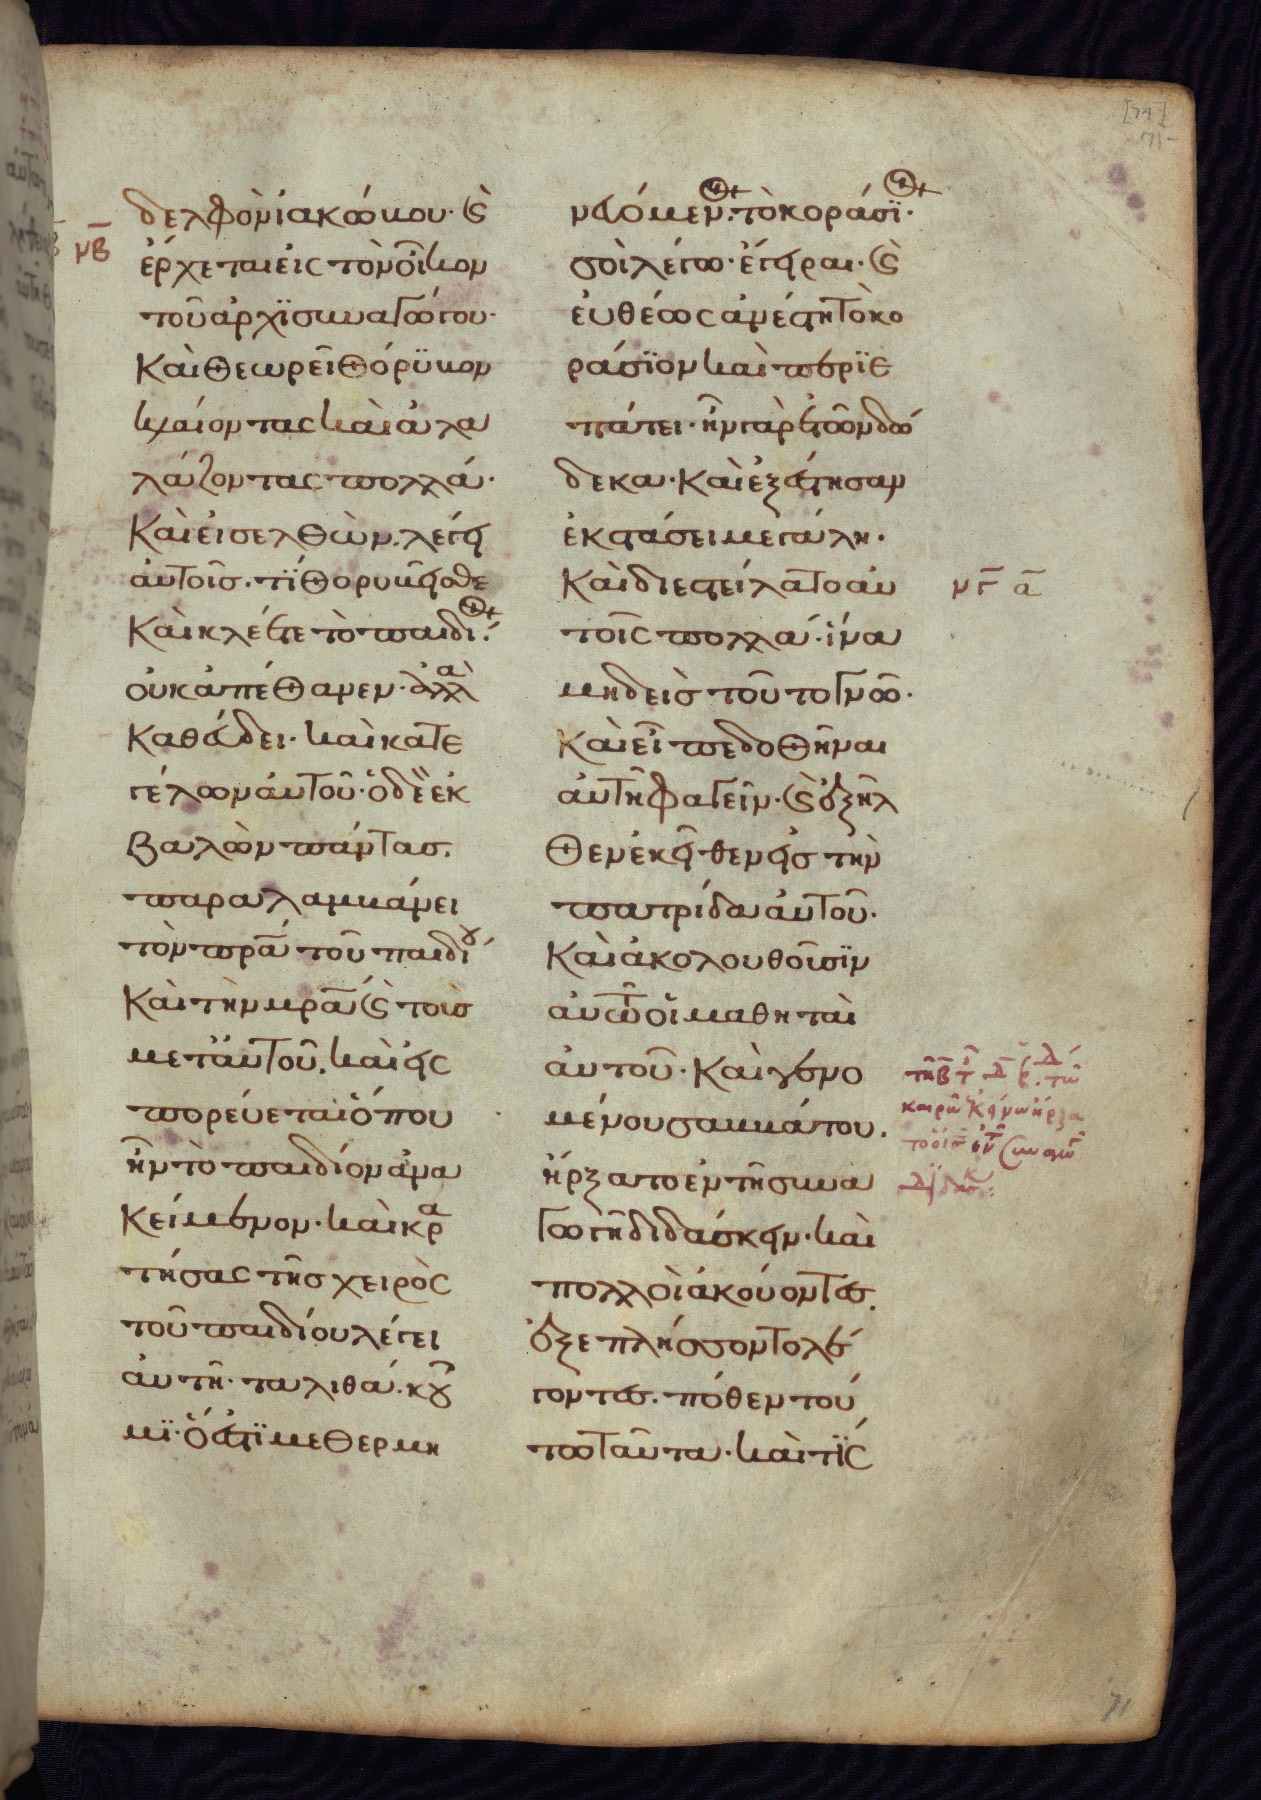 [74]
71
δελφὸν ἰακώβου· ϛ̀
νβ
ἔρχεται εἰς τὸν οἶκον
τοῦ ἀρχϊσυναγώγου·
Καὶ θεωρεῖ θόρϋβον
κλαίοντας καὶ ἀλα
λάζοντας πολλά·
Καὶ εἰσελθὼν. λέγει
αὐτοῖσ. τί θορυβεῖσθε
Καὶ κλέετε τὸ παιδί·
οὐκ ἀπέθανεν· ἀλλὰ
Καθεύδει· καὶ κατε
γέλων αὐτοῦ· ὁ δὲ ἐκ
βαλὼν πάντασ.
παραλαμβάνει
τὸν πρ̅α τοῦ παιδίου
Καὶ τὴν μρ̅α ϛ̀ τοὺσ
μετ' αὐτοῦ. καὶ εἰς
πορεύεται ὅπου
ἦν τὸ παιδίον ἀνα
Κείμενον· καὶ κρα
τήσας τῆσ χειρὸς
τοῦ παιδίου λέγει
αὐτῆ· ταλιθά. κοῦ
μϊ· ὅ ἐστϊ μεθερμη
νευόμενον· τὸ κοράσϊ·
σοὶ λέγω· ἔγειραι· ϛ̀
ἐυθέως ἀνέστη τὸ κο
ράσϊον καὶ περϊε
πάτει· ἦν γὰρ ἐτῶν δώ
δεκα· Καὶ ἐξέστησαν
ἐκστάσει μεγάλη·
Καὶ διεστείλατο αὐ
νγ α
τοῖς πολλά· ἵνα
μηδεὶσ τοῦτο γνῶ·
Καὶ εἶπε δοθῆναι
αὐτῆ φαγεῖν· ϛ̀ ἐξῆλ
θεν ἐκεῖθεν εἰσ τὴν
πατρίδα αὐτοῦ·
Καὶ ἀκολουθοῦσϊν
αὐτῶ οἱ μαθηταὶ
αὐτοῦ· Καὶ γενο
μένου σαββάτου.
ἤρξατο ἐν τῆ συνα
γωγῆ διδάσκειν· καὶ
πολλοὶ ἀκούοντεσ.
ἐξεπλήσσοντο λέ
γοντεσ. πόθεν τού
τω ταῦτα· καὶ τίς
καιρῶ ἐκείνω ἤρξα
71